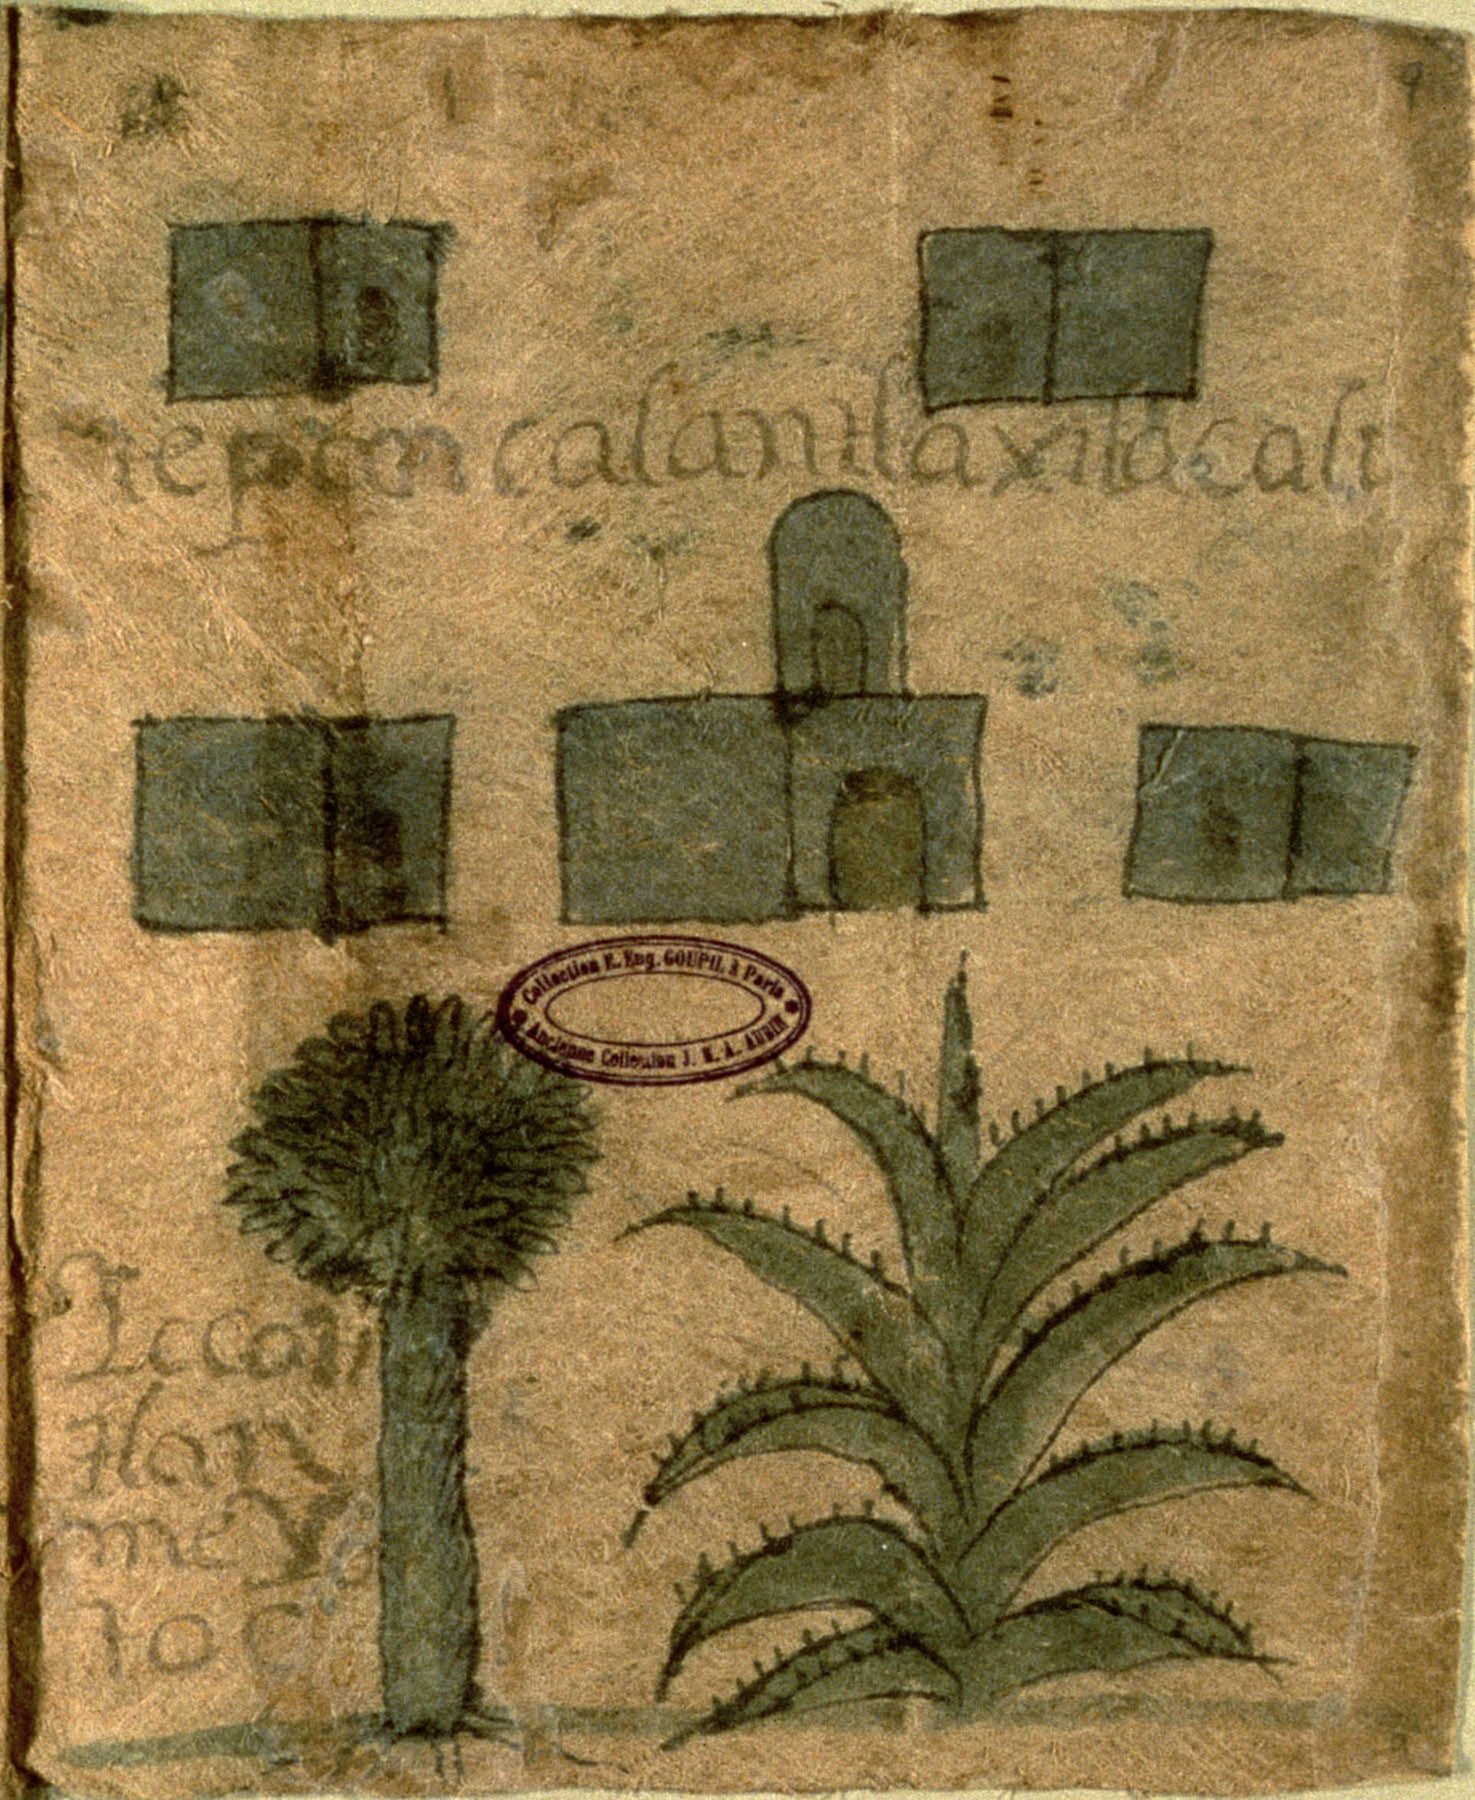 9
tepancalantlaxitlacali
Collection E. Eug. GOUPIL à Paris
Ancienne Collection J. M. A. AUBIN
Iccan
tlan
me Yo
toc